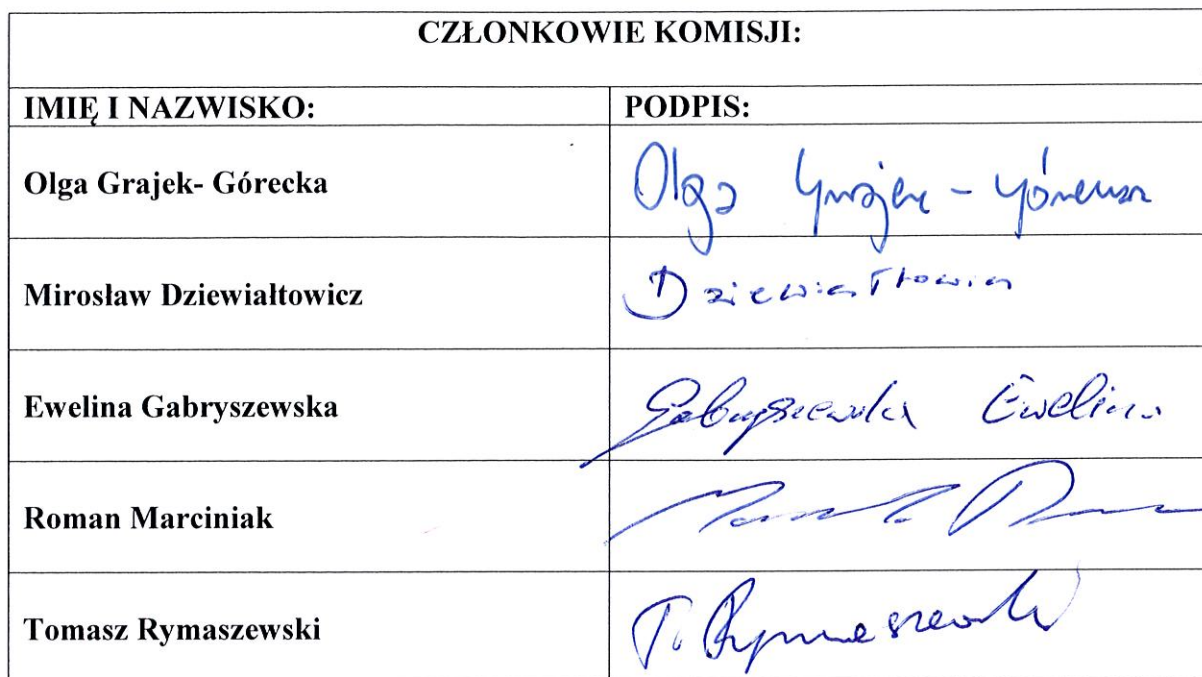 CZŁONKOWIE KOMISJI:
IMIĘ I NAZWISKO: PODPIS:
Olga Grajek- Górecka Olga Grajek - Górecka
Mirosław Dziewiałtowicz Dziewiałtowicz
Ewelina Gabryszewska Gabryszewska Ewelina
Roman Marciniak
Tomasz Rymaszewski T. Rymaszewski